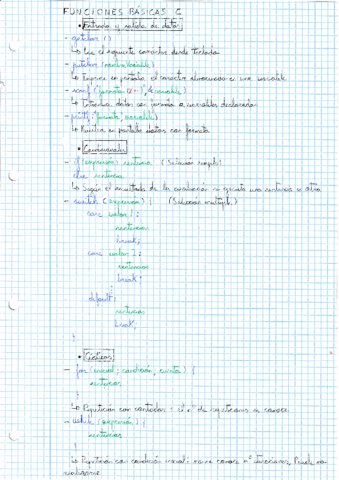 FUNCIONES BÁSICAS C
• Entrada y salida de datos
- getchar ()
↳ Lee el siguiente caracter desde teclado
- putchar (nombreVariable)
↳ Imprime en pantalla el caracter almacenado en una variable
- scanf ("formato", &variable)
↳ Introduce datos con formato a variables declaradas
- printf ("formato", variable)
↳ Muestra en pantalla datos con formato
• Condicionales
- if (expresión) sentencia (Selección simple)
else sentencia
↳ Según el resultado de la evaluación se ejecuta una sentencia u otra
- switch (expresión) { (Selección múltiple)
case valor 1:
sentencias
break;
case valor 2:
sentencias
break;
default:
sentencias
break;
}
• Cíclicas
- for (inicial; condición; cuenta) {
sentencias
}
↳ Repetición con contador: el nº de repeticiones se conoce
- while (expresión) {
sentencias
}
↳ Repetición con condición inicial: no se conoce nº iteraciones. Puede no
realizarse